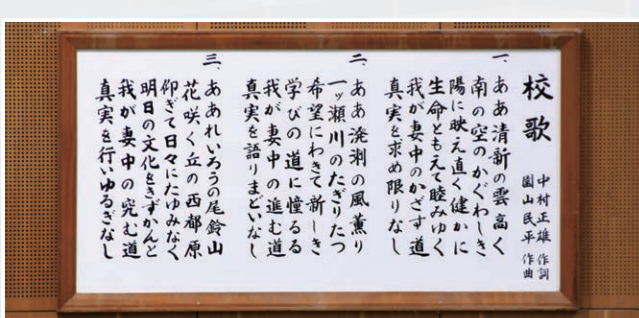 校歌
中村正雄 作詞
園山民平 作曲
一、ああ清新の雲高く
南の空のかぐわしき
陽に映え直く健かに
生命ともえて睦みゆく
我が妻中のかざす道
真実を求め限りなし
二、ああ溌渕の風薫り
一ッ瀬川のたぎりたつ
希望にわきて新しき
学びの道に憧るる
我が妻中の進む道
真実を語りまどいなし
三、ああれいろうの尾鈴山
花咲く丘の西都原
仰ぎて日々にたゆみなく
明日の文化をきずかんと
我が妻中の究む道
真実を行いゆるぎなし